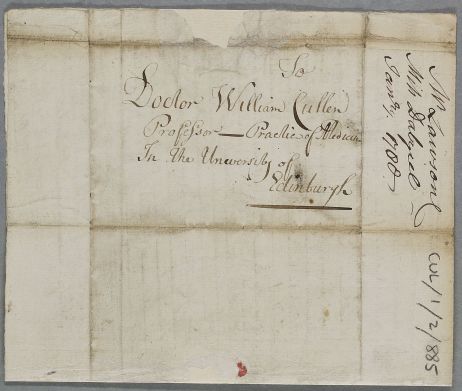 To
Doctor William Cullen
Professor — Practice of Medicin
In the University of
Edinburgh
Mr Lawson
Miss Dalzeel
Jany. 1788
CUL/1/2/885